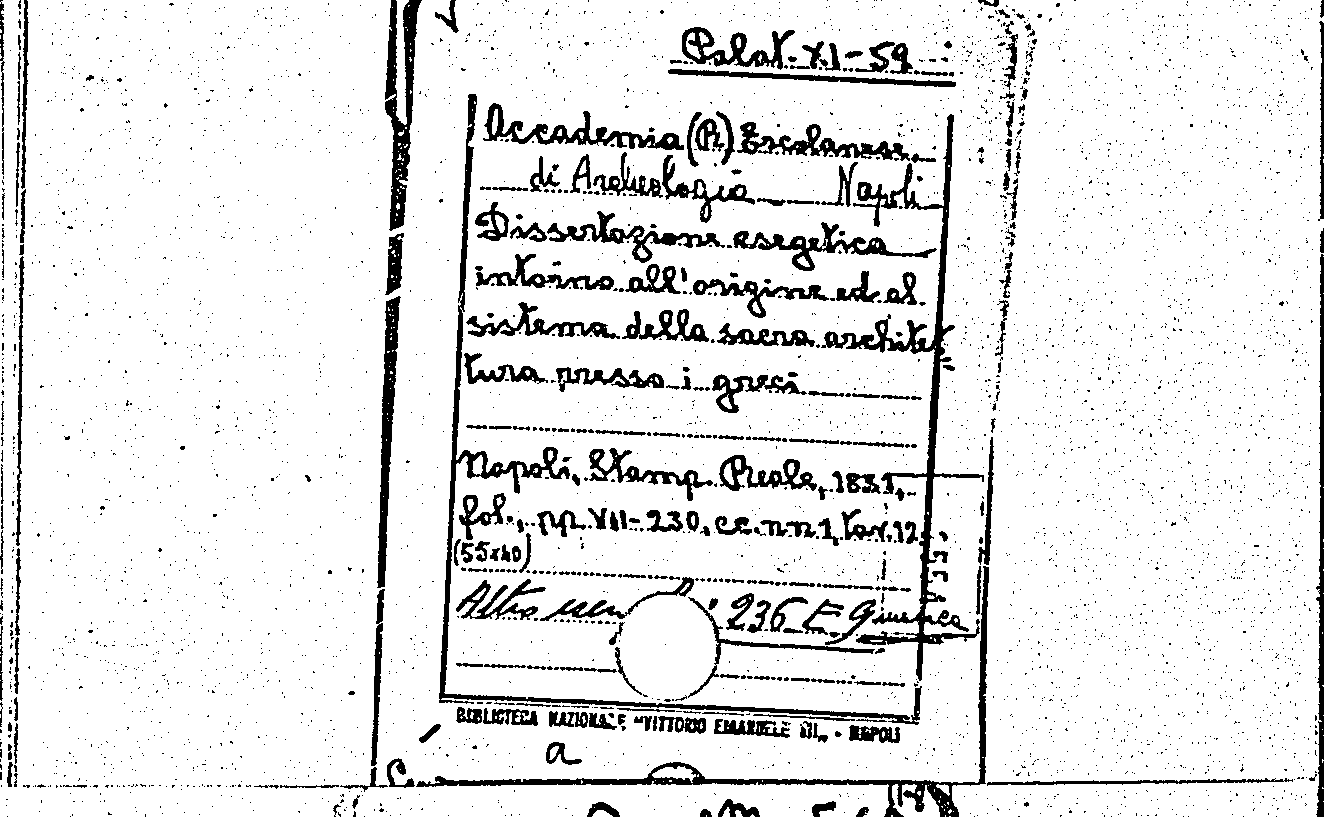 Palat. XI-59
Accademia (R) Ercolanese
di Archeologia Napoli
Dissertazione esegetica
intorno all'origine ed al
sistema della sacra architet"
tura presso i greci
Napoli, Stamp. Reale, 1831,
fol., pp. VIII-230, cc. nn 1, tav. 12.
(55x40)
Altro 236 E
BIBLIOTECA NAZIONALE "VITTORIO EMANUELE III" - NAPOLI
a